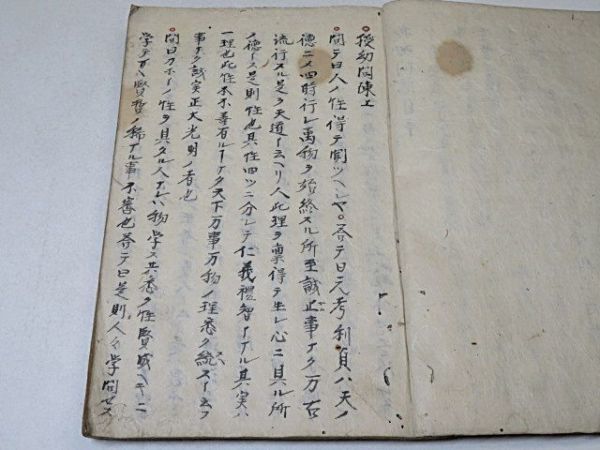 授幼問陳工
問テ曰人ノ性得テ聞ツヘシヤ。答テ曰元亨利貞ハ天ノ
徳ニメ四時行レ萬物ヲ始終スル所至誠止事ナク万古
流行スル是ヲ天道ト云ヘリ人此理ヲ稟得テ生レ心ニ具ル所
ノ徳トス是則性也其性四ツニ分レテ仁義禮智トナル其実ハ
一理也此性本不善有ルナク天下万事万物ノ理悉ク統
事ナク誠実正大光明ノ者也
問曰カホトノ性ヲ具タル人ナレハ物学ス共悉ク性賢成ヘキニ
学テスヘ賢哲ノ稀ナル事不審也答テ曰是則人々学問セス